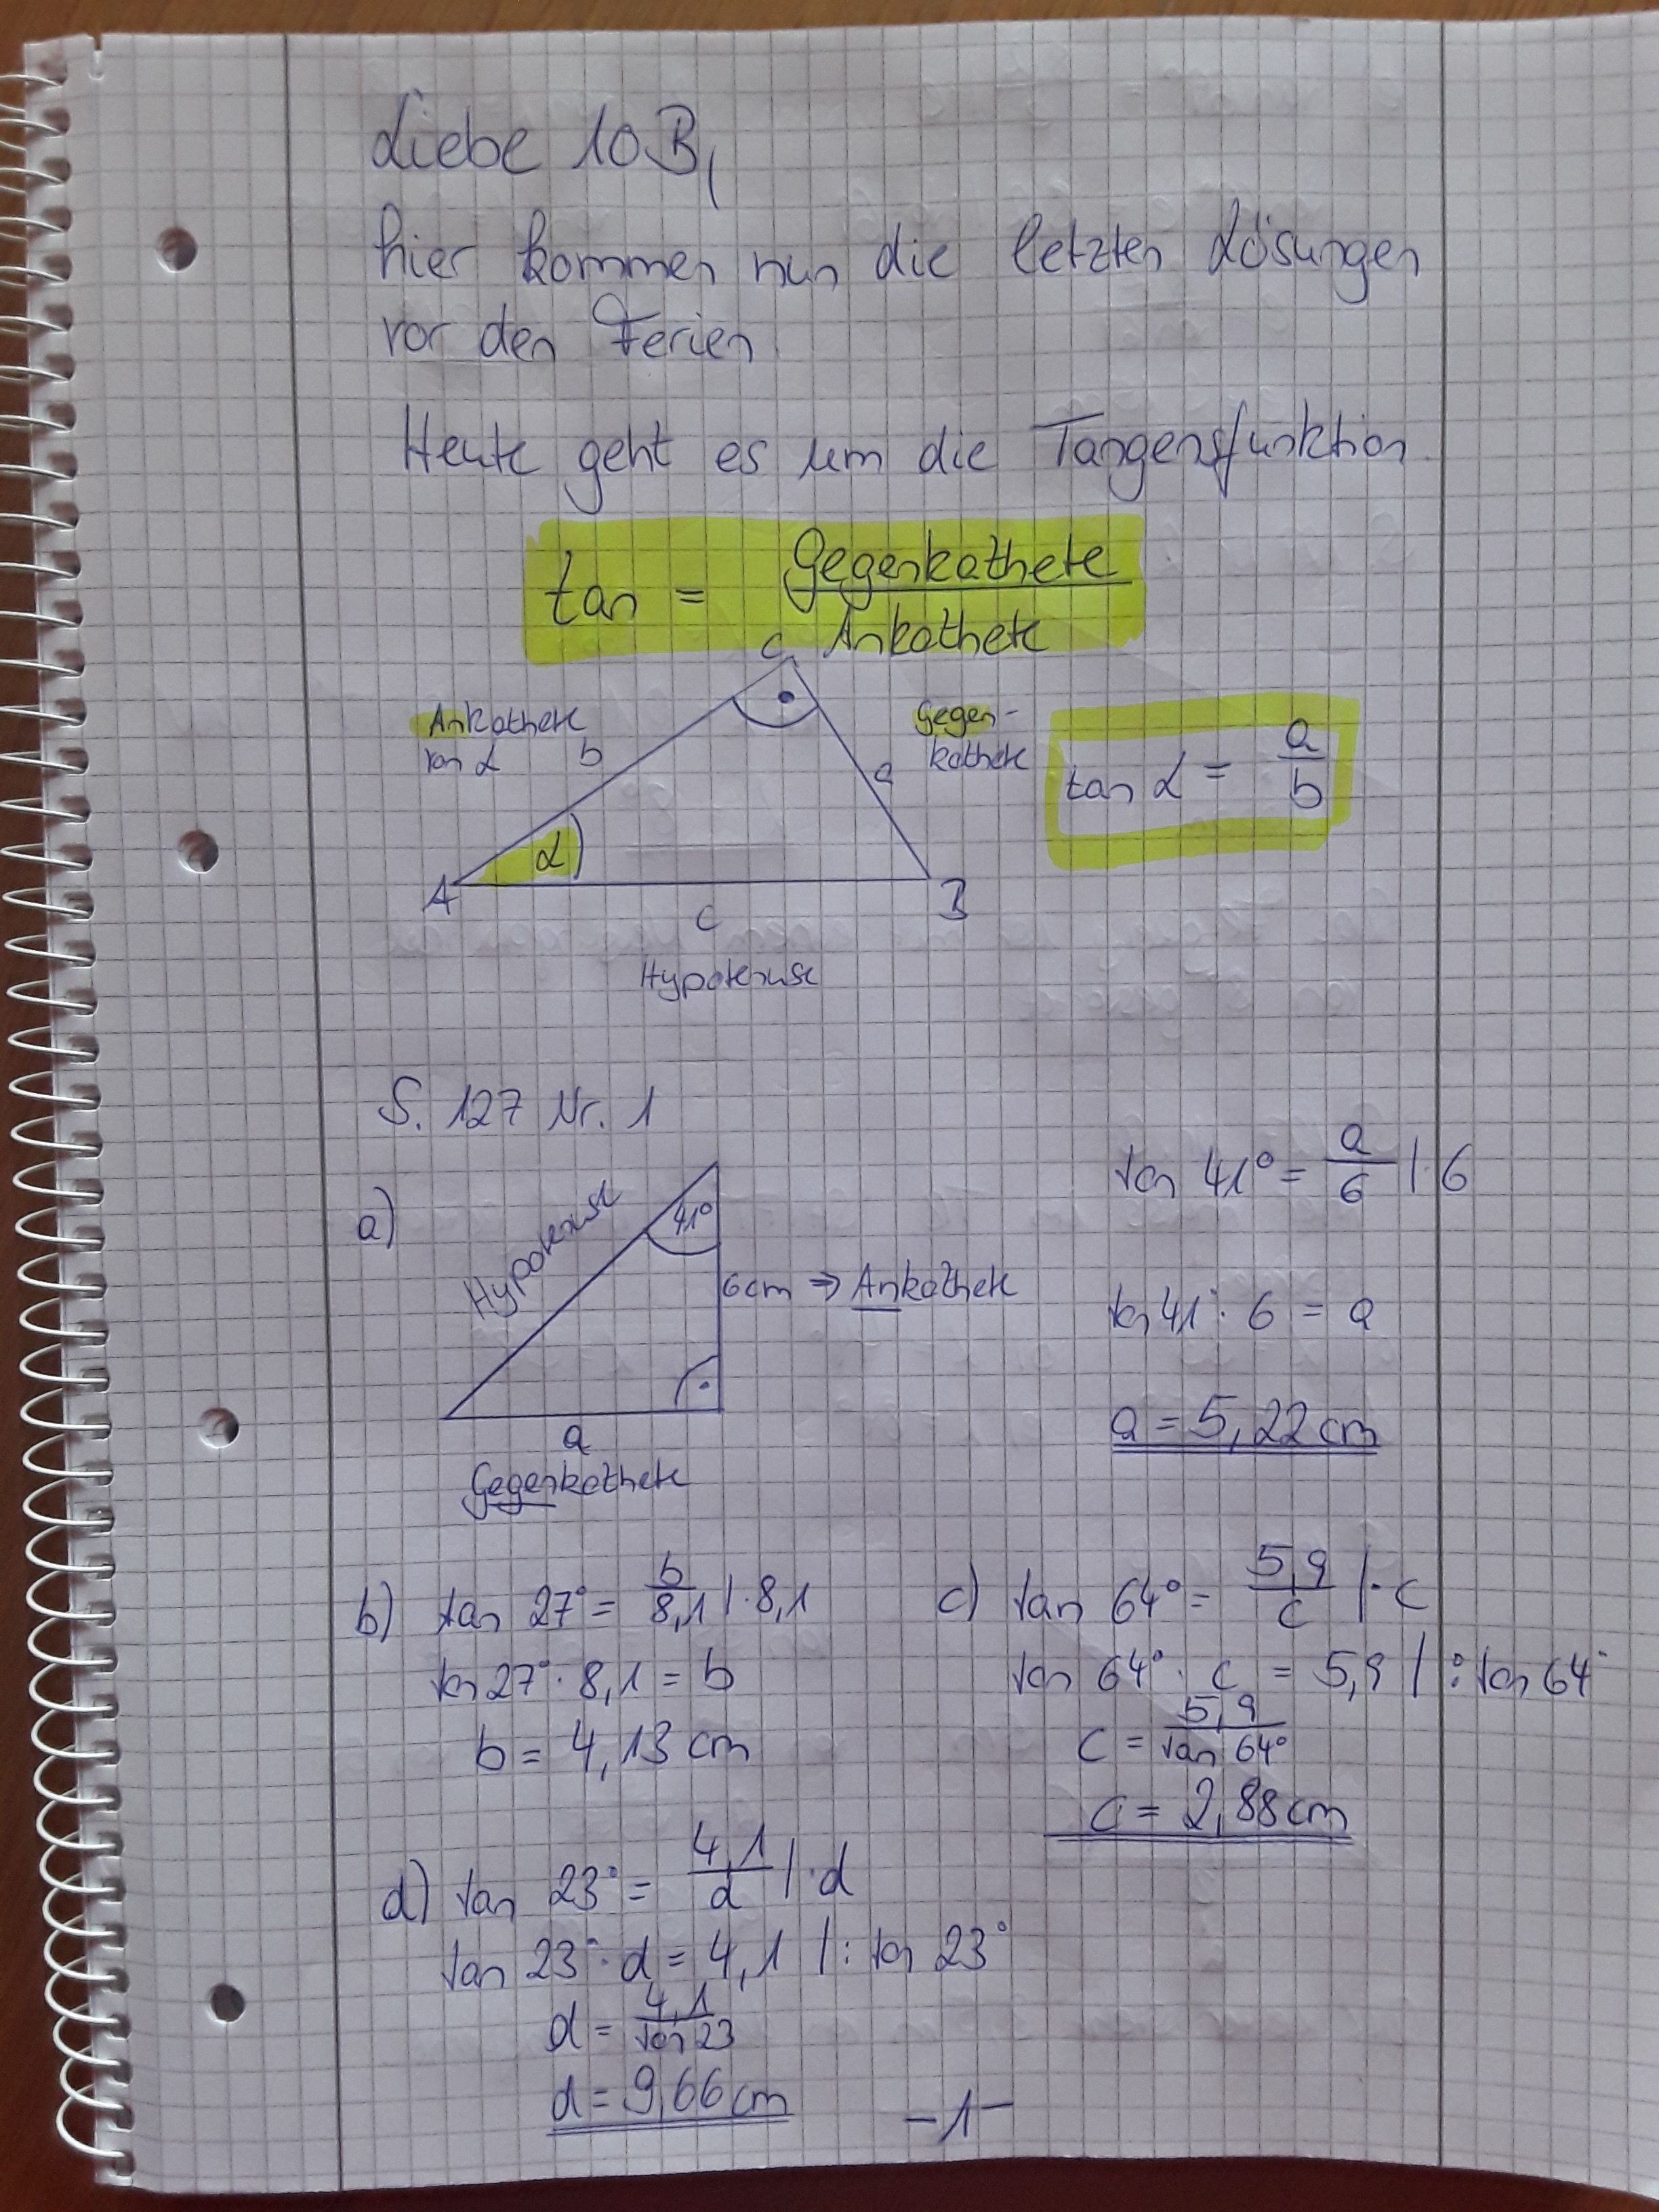 Liebe 10B,
hier kommen nun die letzten Lösungen
vor den Ferien.
Heute geht es um die Tangensfunktion.
tan = Gegenkathete / Ankathete
C
Ankathete
von α
b
Gegen-
kathete
a
tan α = a/b
α
A
c
B
Hypotenuse
S. 127 Nr. 1
a)
Hypotenuse
41°
6cm ⇒ Ankathete
a
Gegenkathete
tan 41° = a/6 | · 6
tan 41° · 6 = a
a = 5,22 cm
b) tan 27° = b/8,1 | · 8,1
tan 27° · 8,1 = b
b = 4,13 cm
c) tan 64° = 5,9/c | · c
tan 64° · c = 5,9 | : tan 64°
c = 5,9/tan 64°
c = 2,88 cm
d) tan 23° = 4,1/d | · d
tan 23° · d = 4,1 | : tan 23°
d = 4,1/tan 23
d = 9,66 cm
-1-